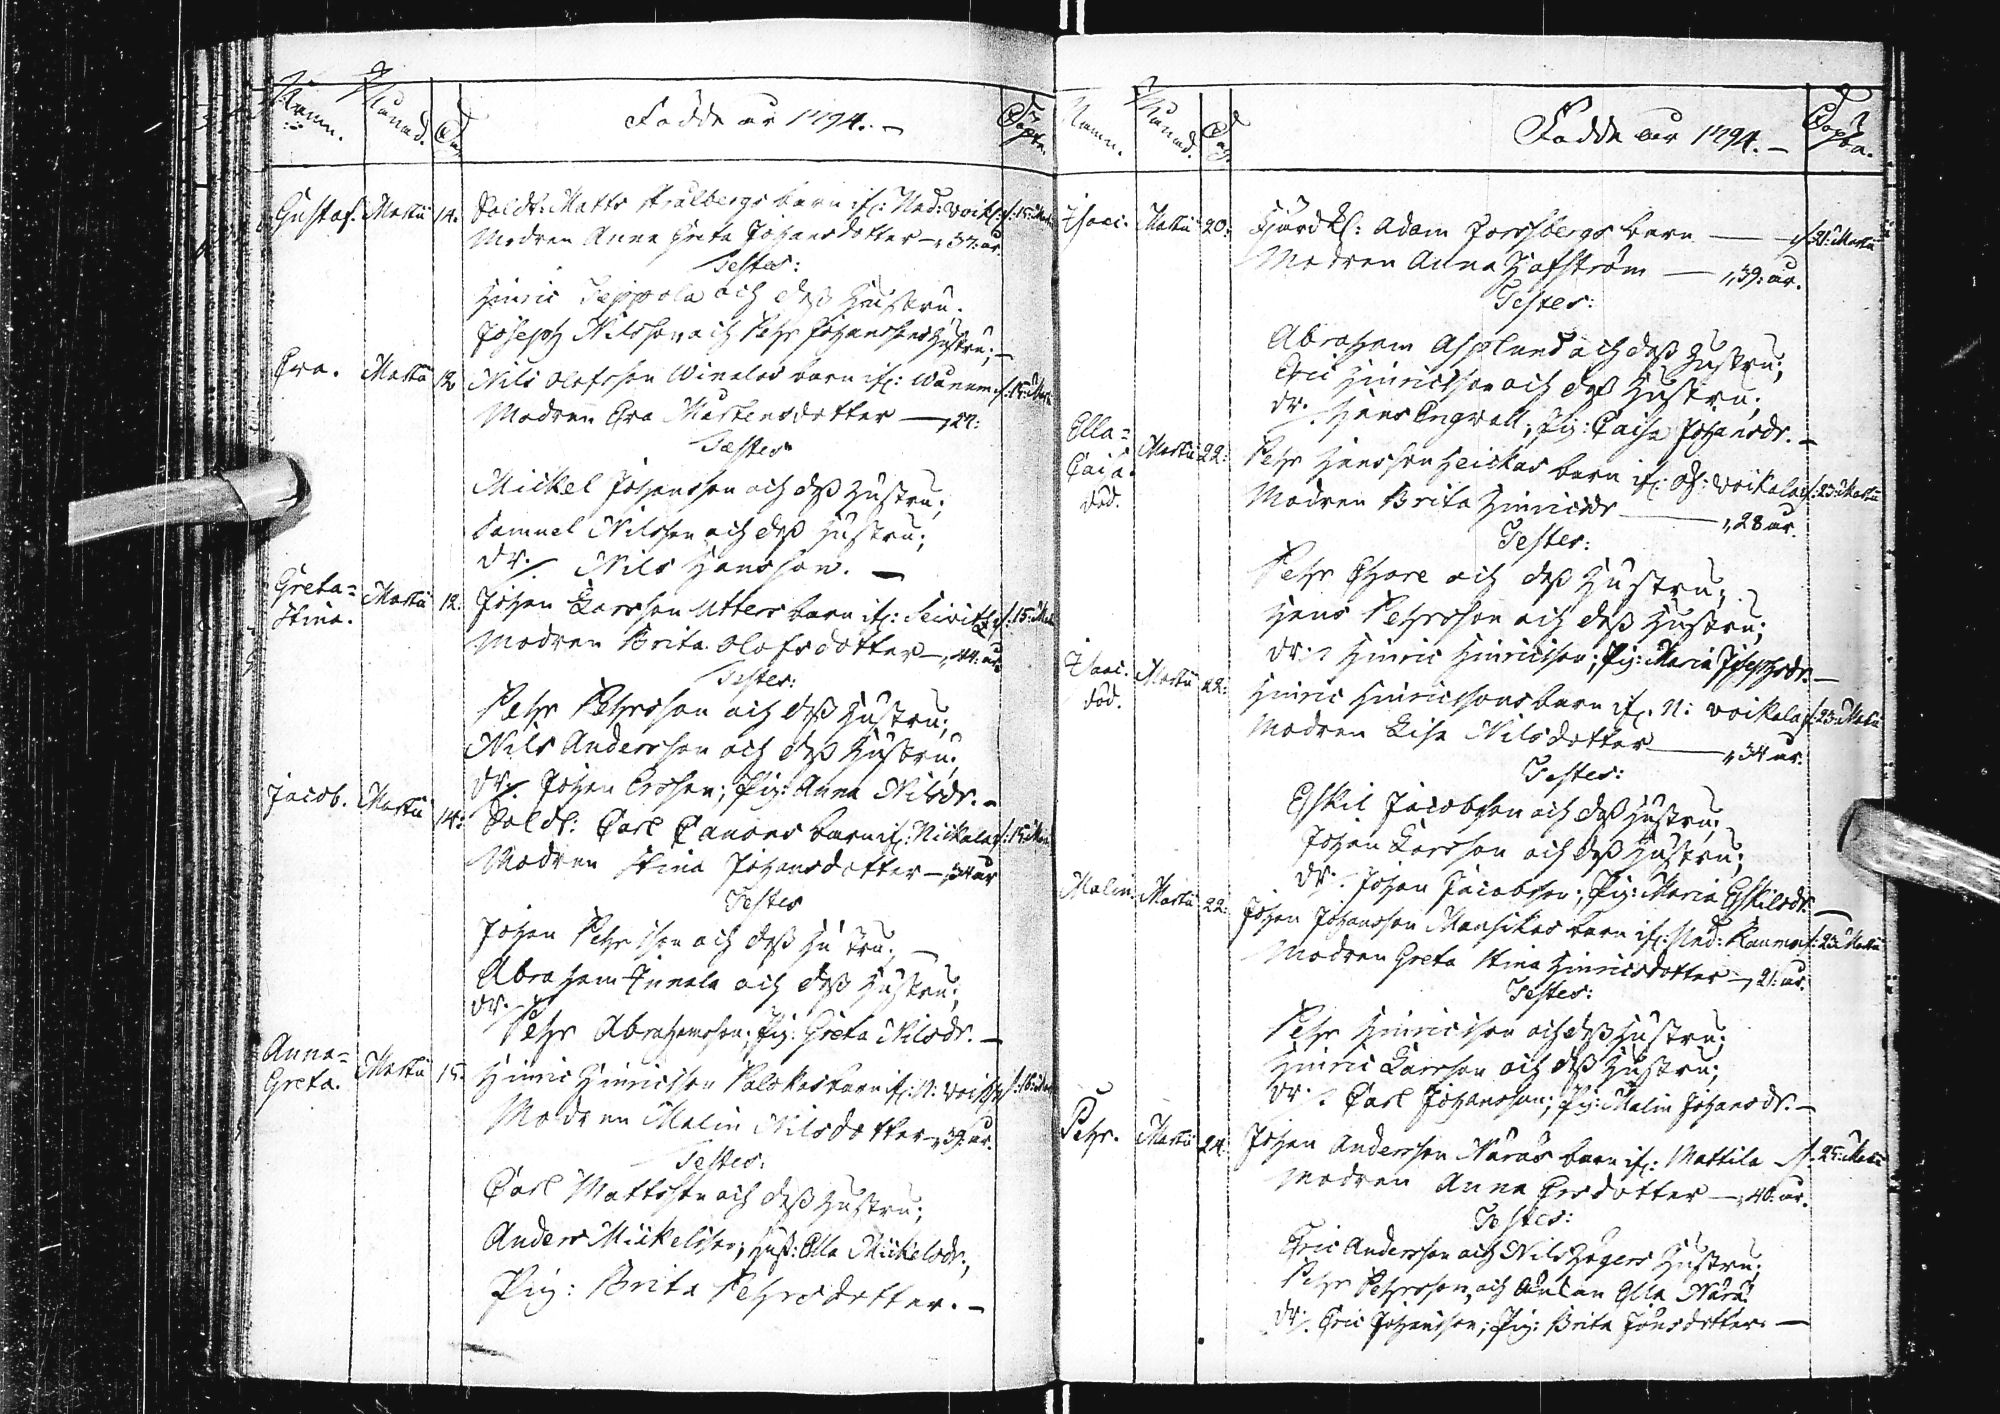 Namn. Månad. Dag Födde år 1794. — Döpte.
Gustaf. Martii 14. Soldt: Matts Strålbergs barn if: Ned: Voik: d: 15: Martii
Modren Anna Greta Johansdotter —, 37: år.
Testes:
Hinric Seppola och dess Hustru;
Joseph Nilsson och Pehr Johanssons Hustru; —
Eva. Martii 12 Nils Olofsson Winelas barn if: d: 15: Martii
Modren Eva Mårtensdotter —, 27:
Testes
Mickel Johansson och dess Hustru;
Samuel Nilsson och dess Hustru;
Dr: Nils Hansson. —
Greta= Stina. Martii 12. Johan Larsson Utters barn if: d: 15: Martii
Modren Brita Olofsdotter —, 44: år
Testes:
Pehr Pehrsson och dess Hustru;
Nils Andersson och dess Hustru;
Dr: Johan Ersson; Pig: Anna Nilsdr. —
Jacob. Martii 14: Soldt: Carl Canons barn if: Nickala d: 15: Martii
Modren Stina Johansdotter —, 34 år
Testes
Johan Pehrsson och dess Hustru; —
Abraham Innala och dess Hustru;
Dr:
Pehr Abrahamsson; Pig: Greta Nilsdr. —
Anna= Greta. Martii 15. Hinric Hinricsson Palokas barn if: N: d: 16: Martii
Modren Malin Nilsdotter, 39: år.
Testes:
Carl Mattsson och dess Hustru;
Anders Mickelsson; Hust: Ella Mickelsdr;
Pig: Brita Pehrsdotter. —
Namn. Månad. Dag. Födde år 1794. — Döpta.
Isaac. Martii 20: Fjärdk: Adam Forssbergs barn — d 21: Martii
Modren Anna Hofström —, 39: år.
Testes:
Abraham Asplund och dess Hustru;
Eric Hinricsson och dess Hustru;
Dr: Hans Engwall; Pig: Caisa Johansdr. —
Ella= Caisa. död. Martii 22: Pehr Hansson Heickas barn if: Öf: Voikala d: 23: Martii
Modren Brita Hinricsdr —, 28 år.
Testes:
Pehr Thore och dess Hustru;
Hans Pehrsson och dess Hustru;
Dr: Hinric Hinricsson; Pig: Maria Josephsdr. —
Isaac. död. Martii 22: Hinric Hinricssons barn if: N: Voikala d: 23: Martii
Modren Lisa Nilsdotter —, 34 år.
Testes:
Eskil Jacobsson och dess Hustru;
Johan Larsson och dess Hustru;
Dr: Johan Jacobsson; Pig: Maria Eskilsdr. —
Malin. Martii 22: Johan Johansson Mansikas barn if: Ned: d: 23: Martii
Modren Greta Stina Hinricsdotter —, 21: år.
Testes:
Pehr Hinricsson och dess Hustru;
Hinric Larsson och dess Hustru;
Dr: Carl Johansson; Pig: Malin Johansdr. —
Pehr. Martii 24. Johan Andersson Näräs barn if: Mattila d: 25: Martii
Modren Anna Ersdotter —, 40: år.
Testes:
Eric Andersson och Nils Hagers Hustru;
Pehr Pehrsson, och Enkan Ella Närä;
Dr: Eric Johansson; Pig: Brita Jönsdotter. —